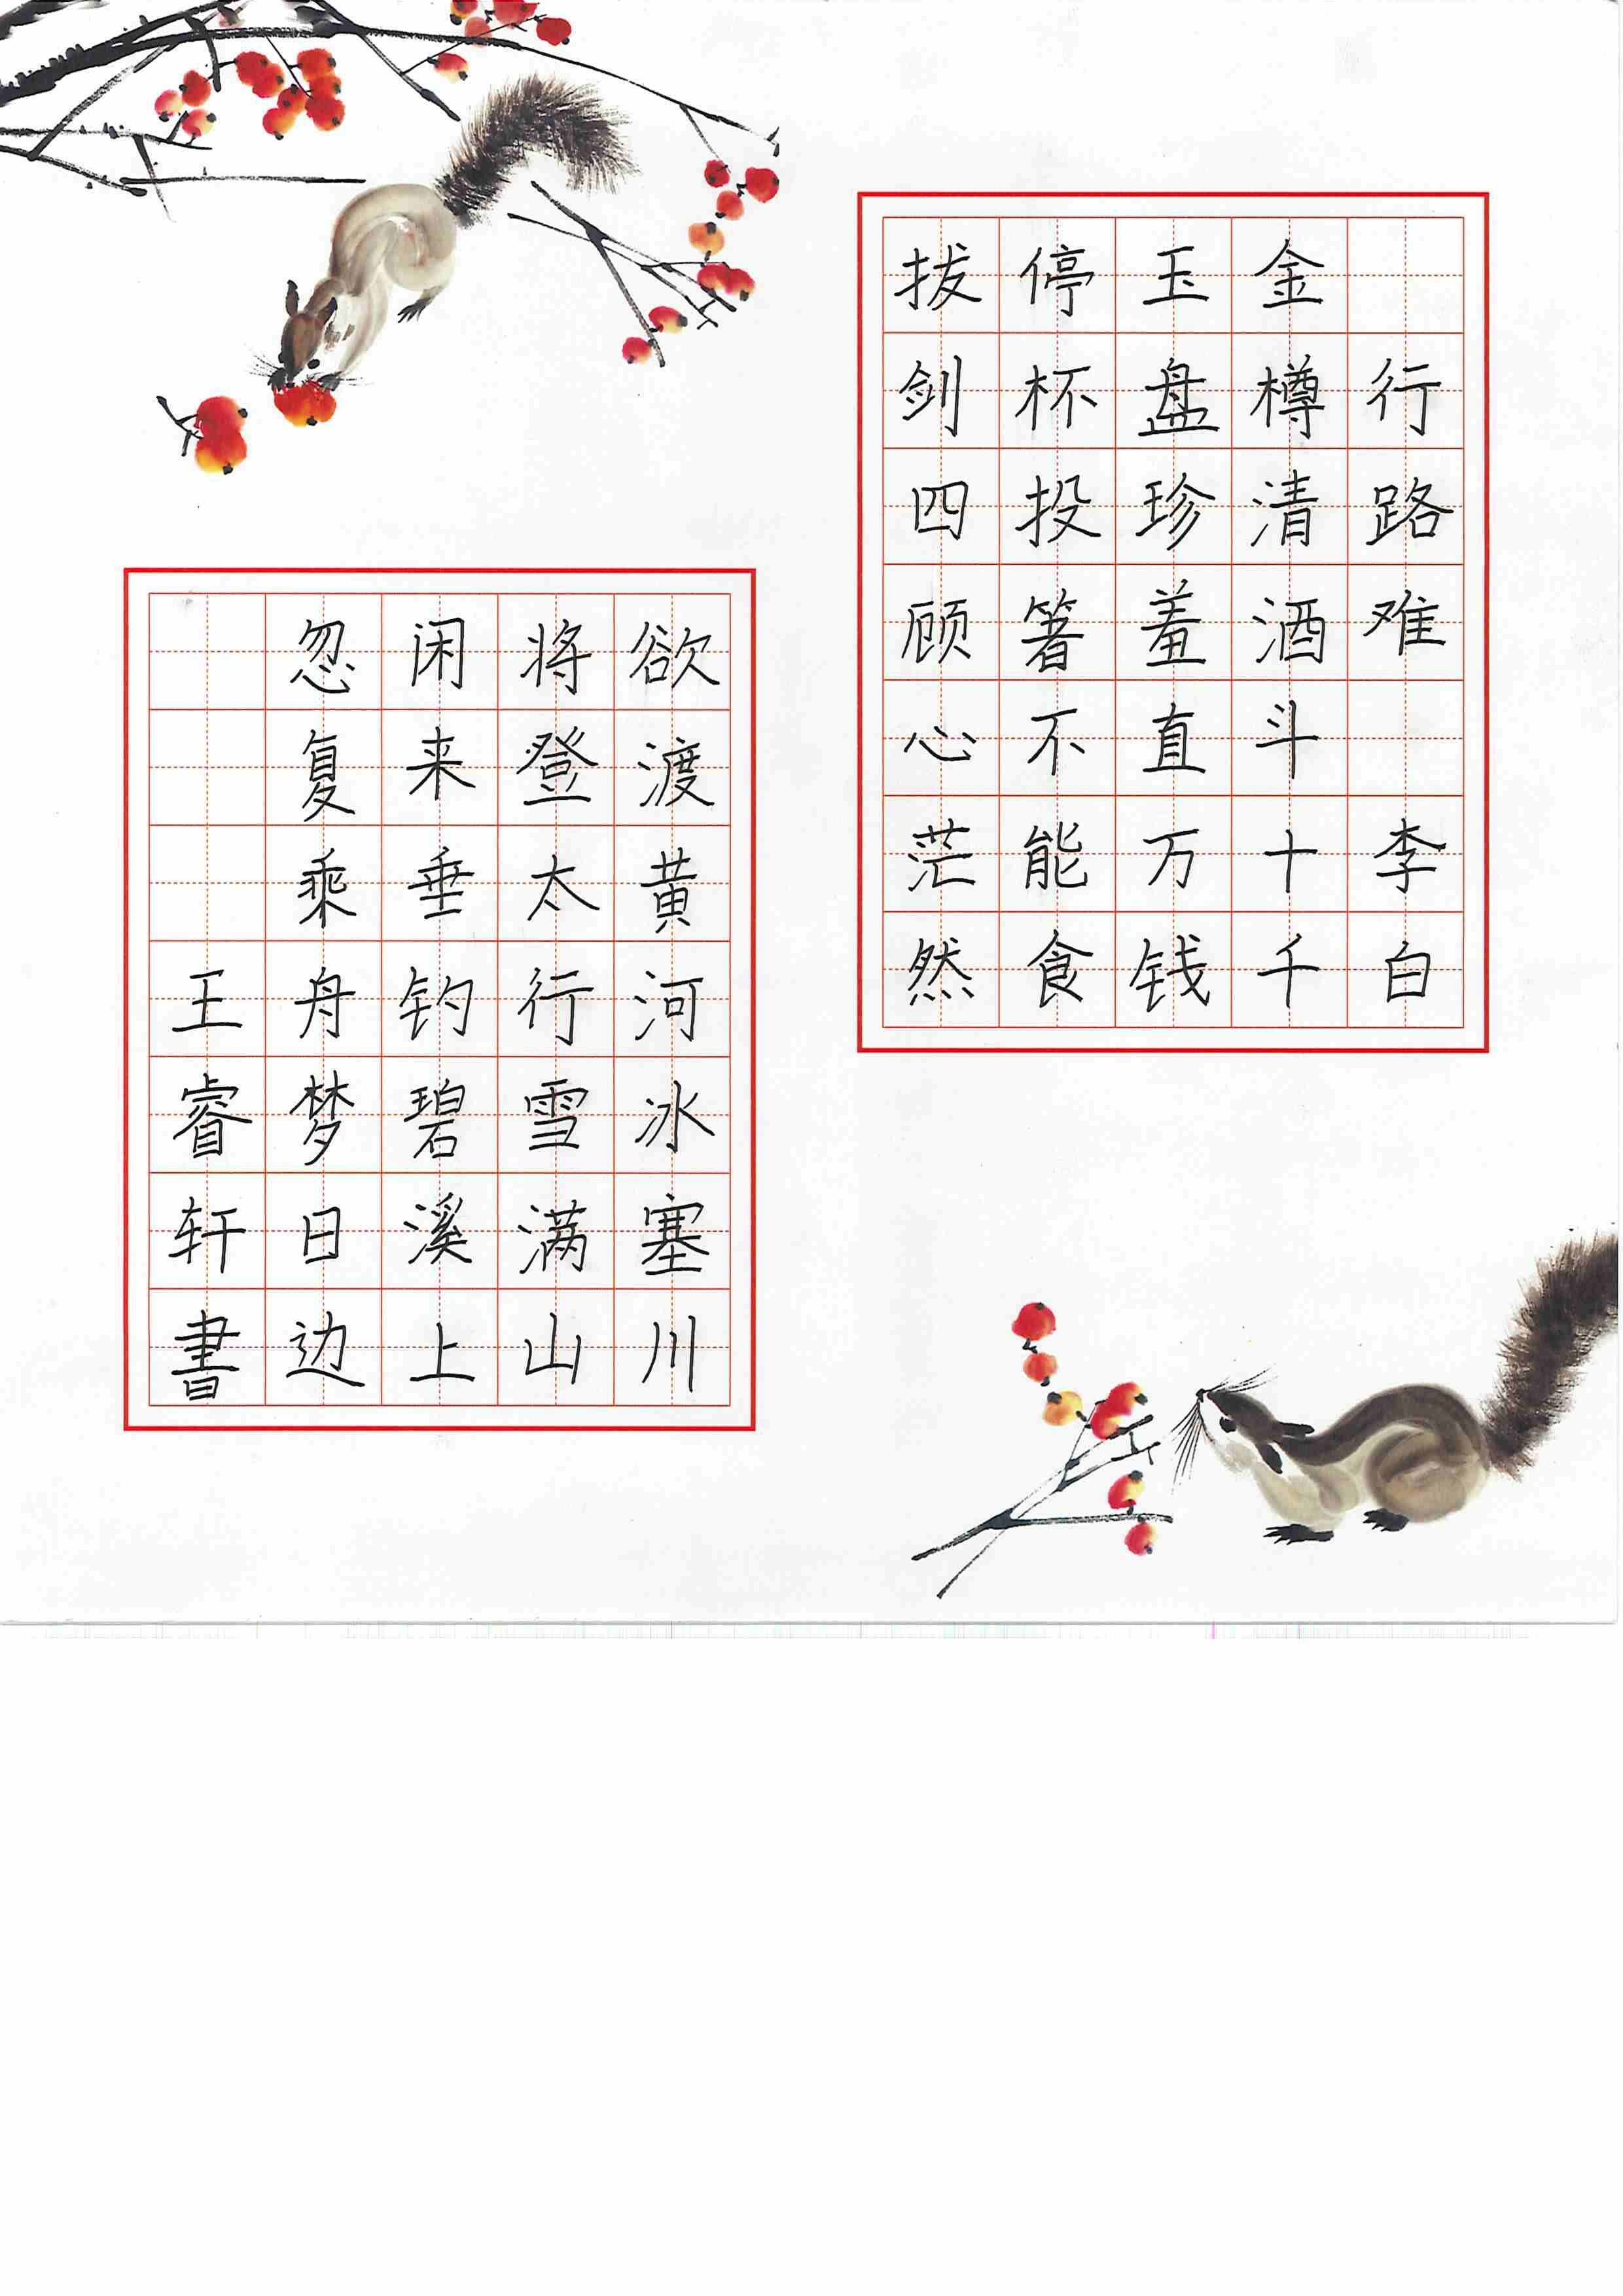 行路难 李白
金樽清酒斗十千
玉盘珍羞直万钱
停杯投箸不能食
拔剑四顾心茫然
欲渡黄河冰塞川
将登太行雪满山
闲来垂钓碧溪上
忽复乘舟梦日边
王睿轩書